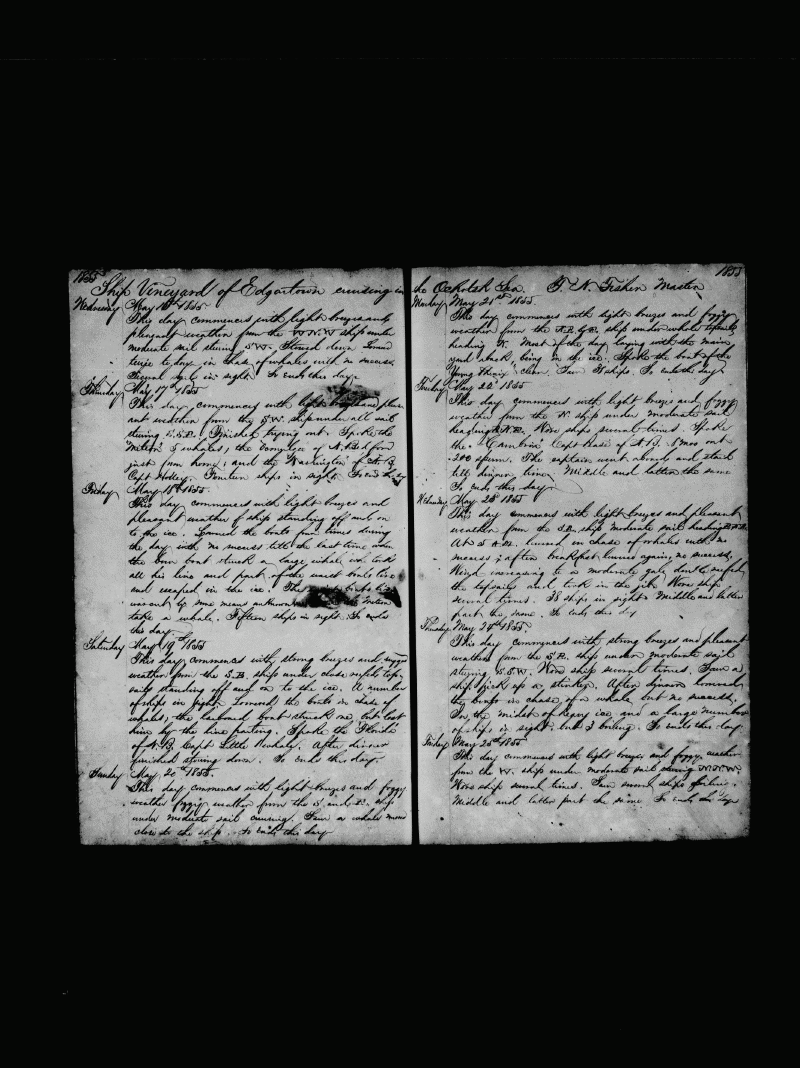 1855
Ship Vineyard of Edgartown cruising in
Wednesday May 16th 1855
This day commences with light breezes and
pleasant weather from the W.N.W ship under
moderate sail stering S.W. Stowed down. Lowed
twice to day in chase of whales with no success.
Several sail in sight. So ends this day
Thursday May 17th 1855
This day commences with light and pleas
ant weather from the S.W. ship under all sail
stering E.S.E. Finished trying out. Spoke the
Metacom 5 whales, the of N. Bedford
just from home, and the Washington of N. B.
Capt Holley. Fourteen ships in sight. So ends this day
Friday May 18th 1855
This day commences with light breezes and
pleasant weather & ship standing off and on
to the ice. Lowered the boats four times during
the day with no success till the last time when
the bow boat struck a large whale who took
all his line and part of the waist boats line
and escaped in the ice. The boats line
was cut by some means unknown
take a whale. Fifteen ships in sight. So ends
this day
Saturday May 19th 1855
This day commences with strong breezes and rugged
weather from the S.E. ship under close reefed top-
sails standing off and on to the ice. A number
of ships in sight. Lowered the boats in chase of
whales, the larboard boat struck one but lost
him by the line parting. Spoke the Florida
of N.B. Capt Little whaly. After dinner
finished stowing down. So ends this day.
Sunday May 20th 1855.
This day commences with light breezes and foggy
weather foggy weather from the S. and E. ship
under moderate sail cruising. Saw a whale
close to the ship. So ends this day
1855
the Ochotsk Sea. G. N. Fisher Master
Monday May 21st 1855.
This day commences with light breezes and foggy
weather from the N.E. by E. ship under whole topsails
heading N. Most of the day laying with the main
yard aback, being in the ice. Spoke the boat of the
Young Phenix, clean. Saw 11 ships. So ends the day
Tuesday May 22d 1855
This day commences with light breeze and foggy
weather from the N. ship under moderate sail
heading N.E. Wore ship several times. Spoke
the "Cambria" Capt Pease of N.B. 8 mos out
200 sperm. The captain went aboard and staid
till dinner time. Middle and latter the same
So ends this day
Wednesday May 23d 1855
This day commences with light breezes and pleasant
weather from the S.E. ship moderate sail heading
At 5 A.M. lowered in chase of whales with no
success; after breakfast lowered again, no success.
Wind increasing to a moderate gale, double reefed
the topsails and took in the jib. Wore ship
several times. 18 ships in sight. Middle and latter
part the same. So ends this day
Thursday May 24th 1855.
This day commences with strong breezes and pleasant
weather from the S.E. ship under moderate sail
stering S.S.W. Wore ship several times. Saw a
ship pick up a stinker. After dinner lowered
the boats in chase of a whale but no success.
In the midst of heavy ice and a large number
of ships in sight but 3 boiling. So ends this day.
Friday May 25th 1855
This day commences with light breezes and foggy weather
from the W. ship under moderate sail stering N.N.W.
Wore ship several times. Saw several ships
Middle and latter part the same. So ends this day